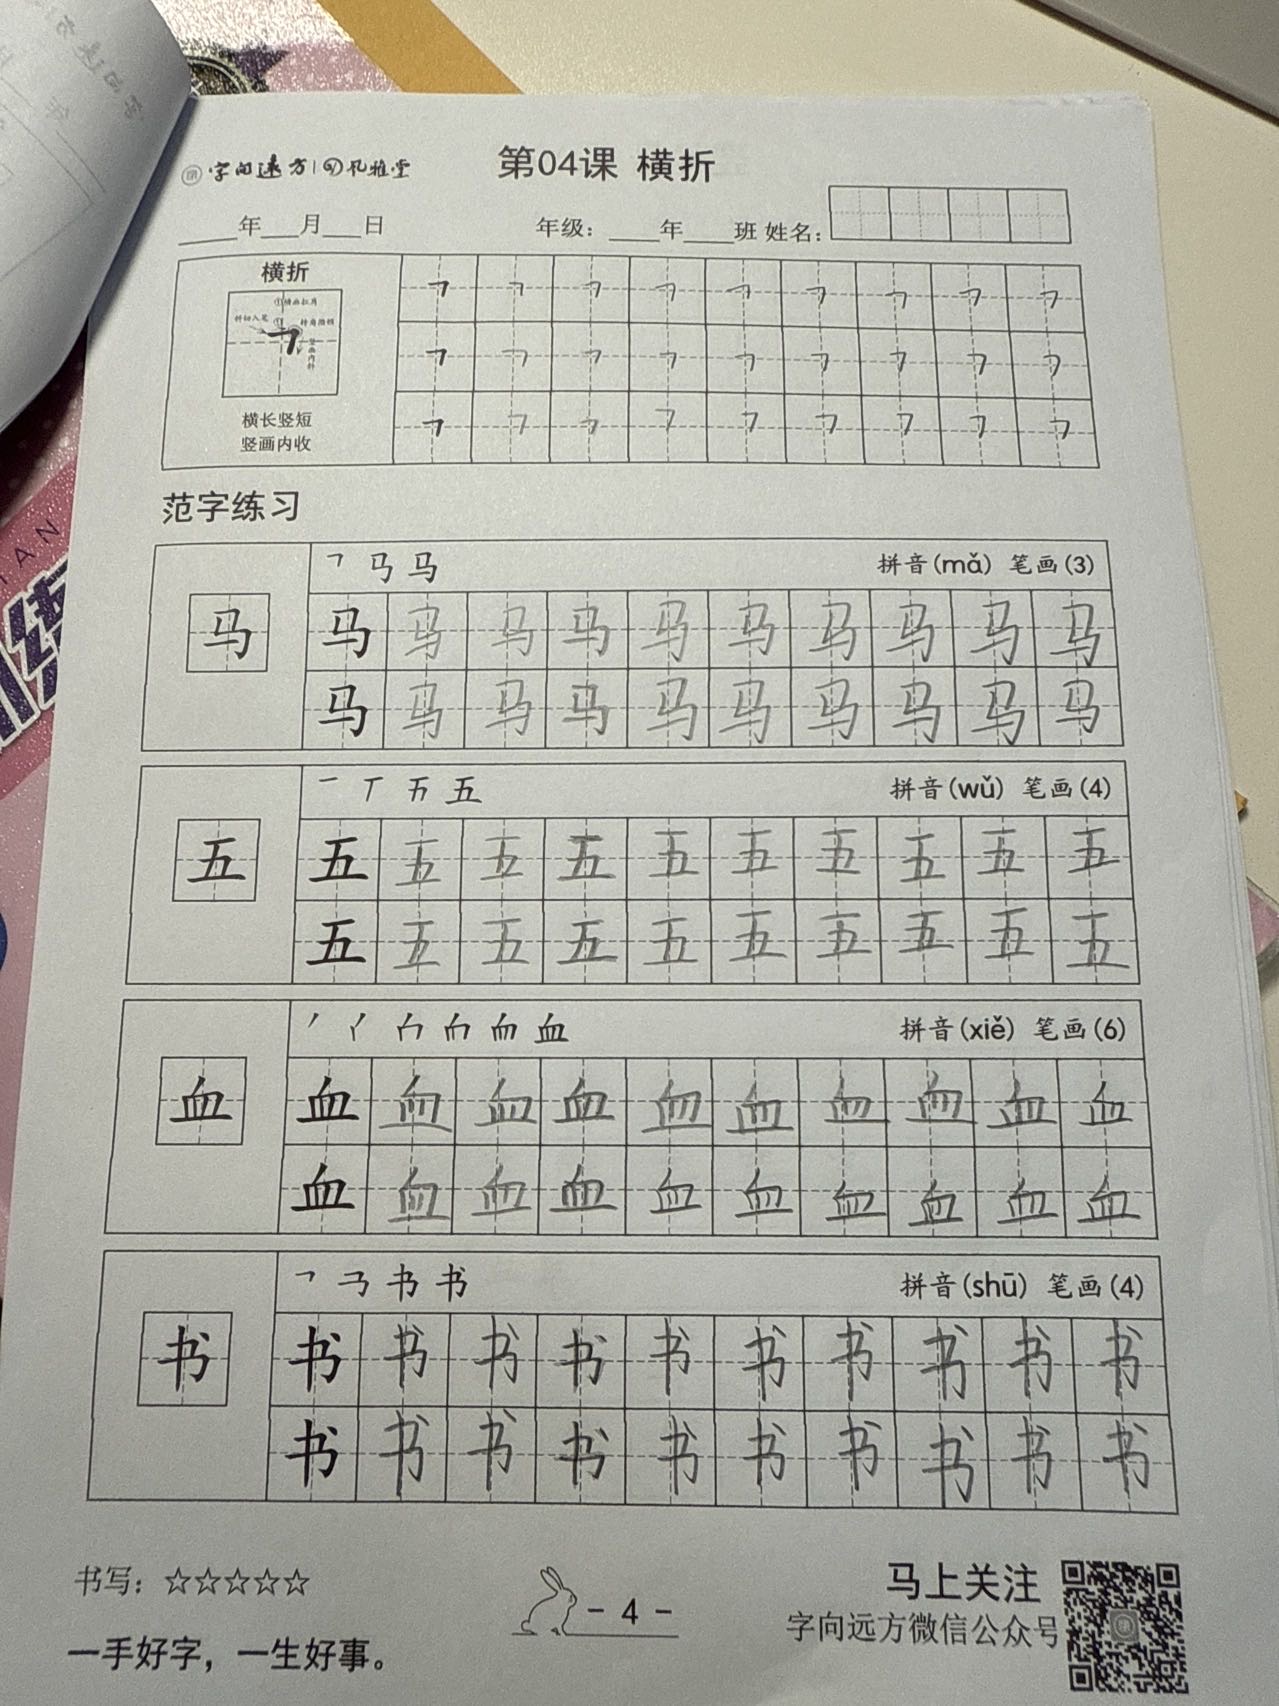 字向远方 孔雅堂
第04课 横折
____年___月___日 年级：____年____班 姓名：
横折
①横画扛肩
斜切入笔
转角滑顿
竖画内斜
横长竖短
竖画内收
㇕ ㇕ ㇕ ㇕ ㇕ ㇕ ㇕ ㇕ ㇕
㇕ ㇕ ㇕ ㇕ ㇕ ㇕ ㇕ ㇕ ㇕
㇕ ㇕ ㇕ ㇕ ㇕ ㇕ ㇕ ㇕ ㇕
范字练习
马 拼音(mǎ) 笔画(3)
马
马 马 马 马 马 马 马 马 马 马
马 马 马 马 马 马 马 马 马 马
五 拼音(wǔ) 笔画(4)
五
五 五 五 五 五 五 五 五 五 五
五 五 五 五 五 五 五 五 五 五
血 拼音(xiě) 笔画(6)
血
血 血 血 血 血 血 血 血 血 血
血 血 血 血 血 血 血 血 血 血
书 拼音(shū) 笔画(4)
书
书 书 书 书 书 书 书 书 书 书
书 书 书 书 书 书 书 书 书 书
书写：☆☆☆☆☆
- 4 -
马上关注
字向远方微信公众号
一手好字，一生好事。